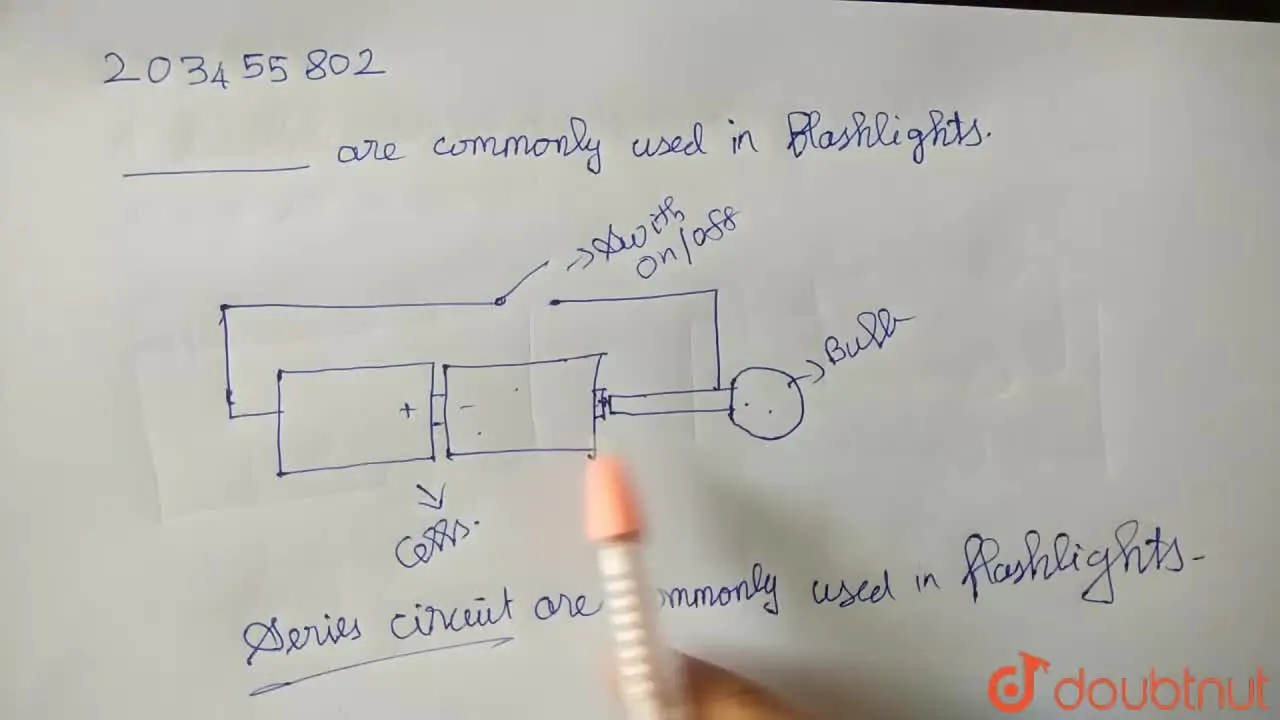 203455802
are commonly used in flashlights.
Swith
on/off
Bulb
+
-
+
Cells.
Series circuit are commonly used in flashlights.
doubtnut